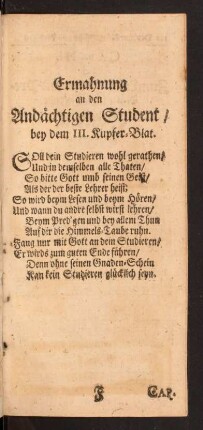 Ermahnung
an den
Andächtigen Student /
bey dem III. Kupfer-Blat.
SOll dein Studieren wohl gerathen/
Und in demselben alle Thaten/
So bitte Gott umb seinen Geist/
Als der der beste Lehrer heist:
So wird beym Lesen und beym Hören/
Und wann du andre selbst wirst lehren/
Beym Pred'gen und bey allem Thun
Auf dir die Himmels-Taube ruhn.
Fang nur mit Gott an dein Studieren/
Er wirds zum guten Ende führen/
Denn ohne seinen Gnaden-Schein
Kan kein Studieren glücklich seyn.
F CAP.